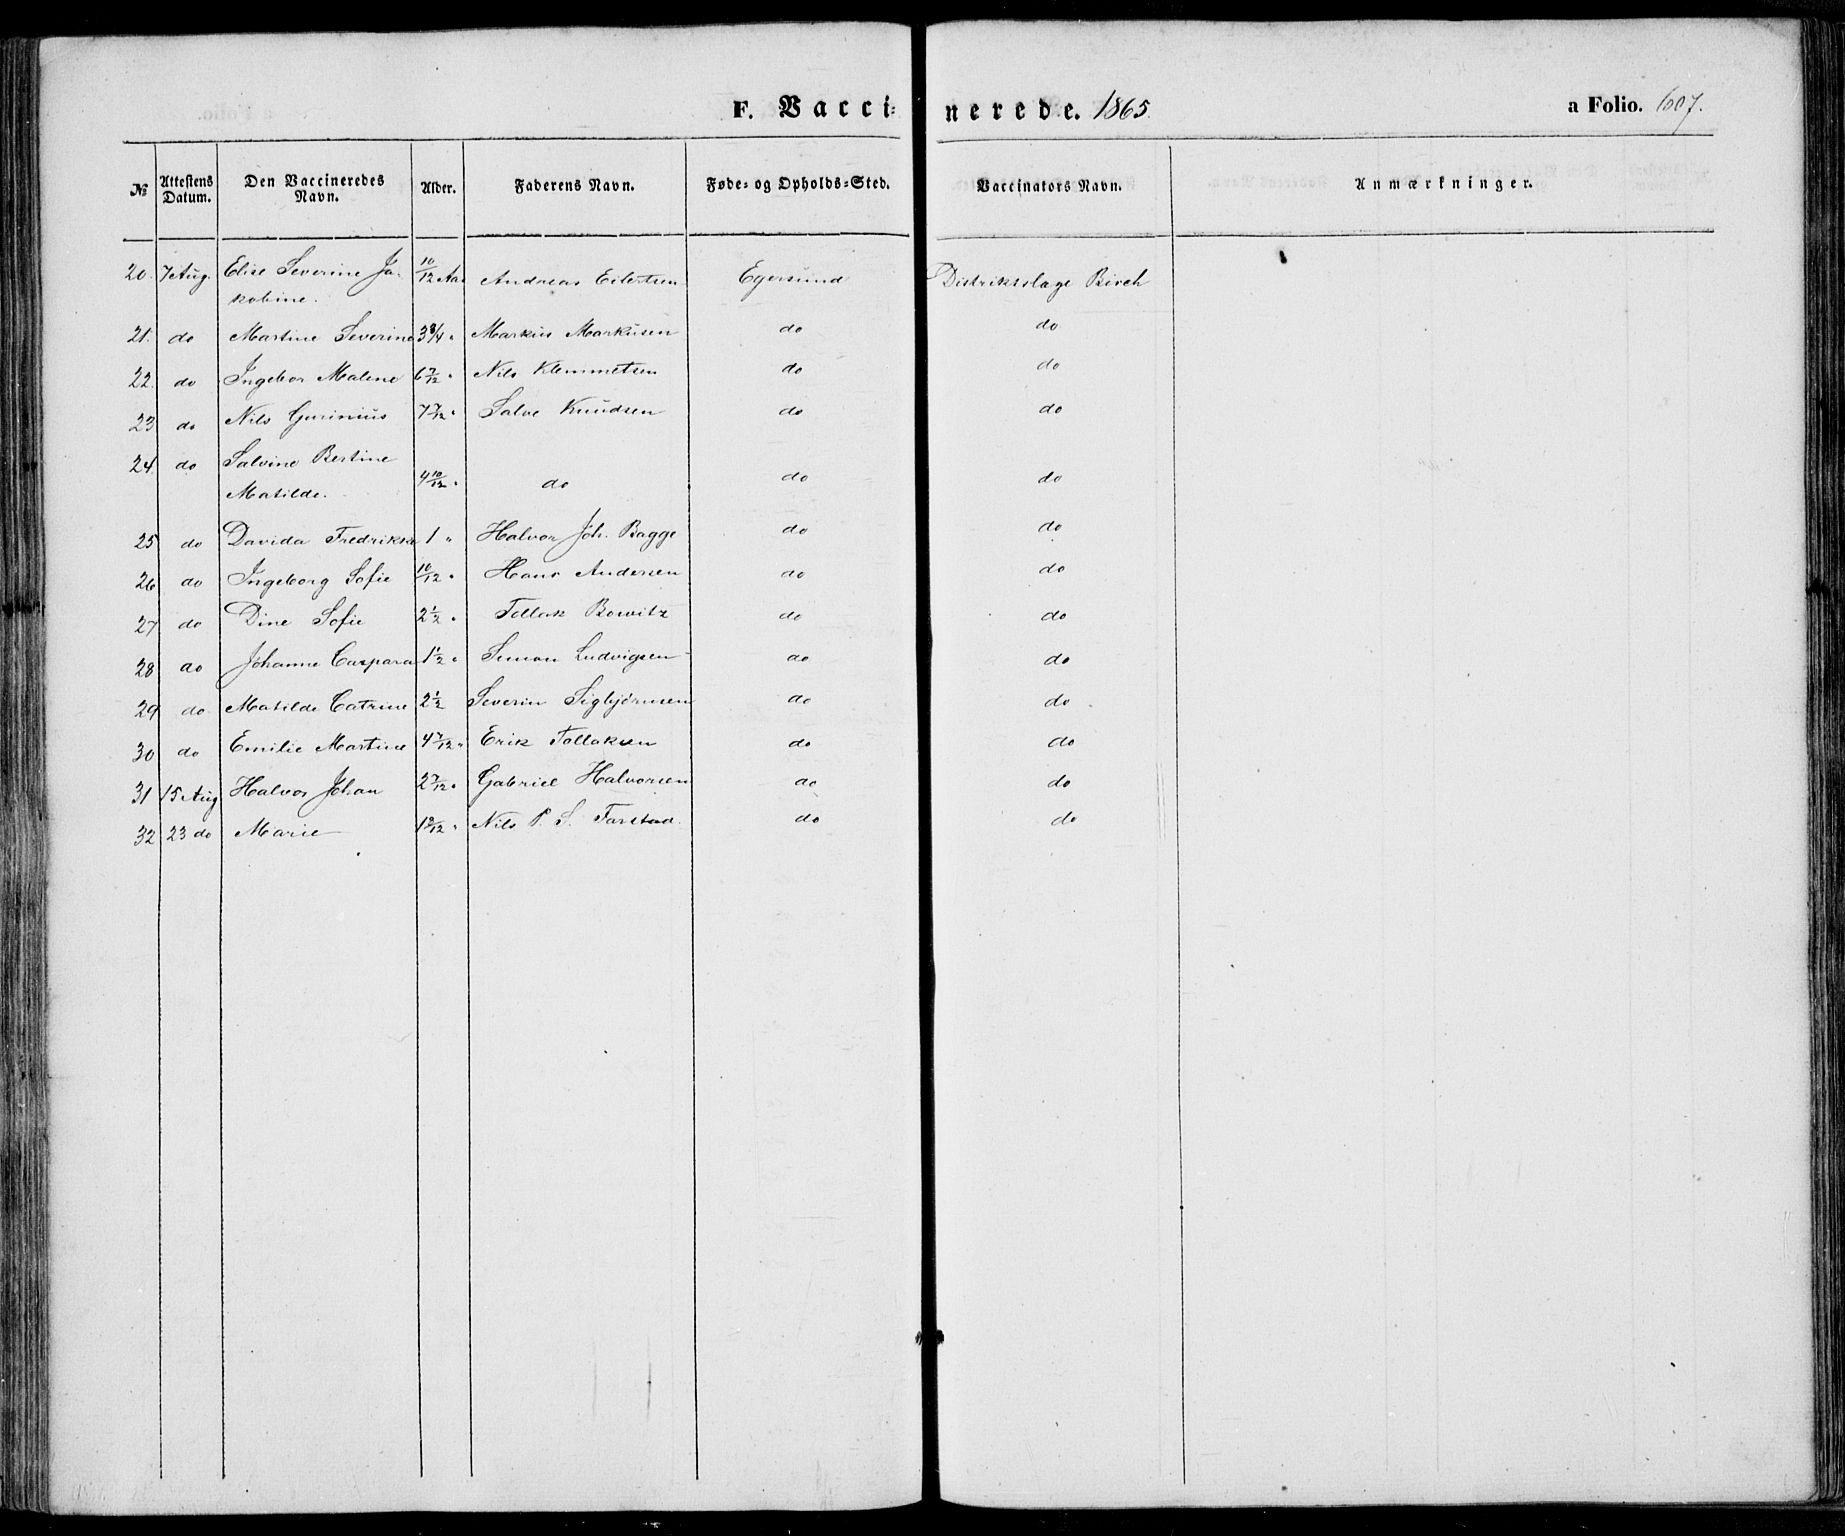 F. Vacci- nerede. 1865. a Folio. 607.
№ | Attestens Datum. | Den Vaccineredes Navn. | Alder. | Faderens Navn. | Føde- og Opholds-Sted. | Vaccinators Navn. | Anmærkninger.
20. 7 Aug. Elise Severine Ja- 10/12 Aar Andreas Eilertsen Egersund Distriktslæge Birch
kobine.
21. do Martine Severine 3 3/4 " Markus Markusen do do
22. do Ingebor Malene 6 7/12 " Nils Klemmetsen do do
23 do Nils Gurinius 7 7/12 " Salve Knudsen do do
24. do Salvine Bertine
Matilde. 4 10/12 " do do do
25 do Davida Fredrikke 1 " Halvor Joh. Bagge do do
26 do Ingeborg Sofie 10/12 " Hans Andersen do do
27 do Dine Sofie 2 1/2 " Tollak Bowitz do do
28 do Johanne Caspara 1 1/2 " Simon Ludvigsen do do
29 do Matilde Catrine 2 1/2 Severin Sigbjørnsen do do
30 do Emilie Martine 4 7/12 " Erik Tollaksen do do
31 15 Aug Halvor Johan 2 7/12 " Gabriel Halvorsen do do
32 23 do Marie Nils P. S. Tarstad. do do